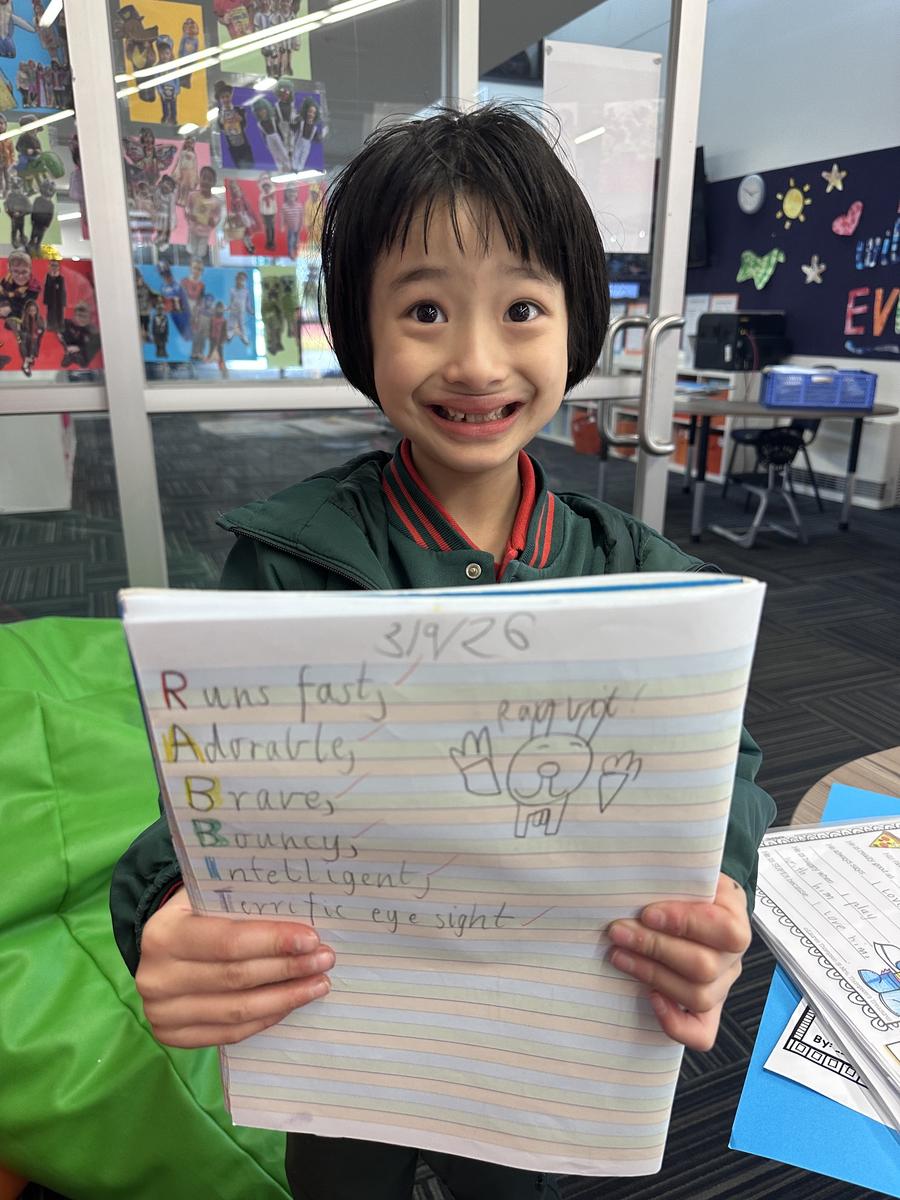 3/9/26
Runs fast,
Adorable,
Brave,
Bouncy,
Intelligent,
Terrific eye sight
EV
I love
I play
with him
I love him.
By: